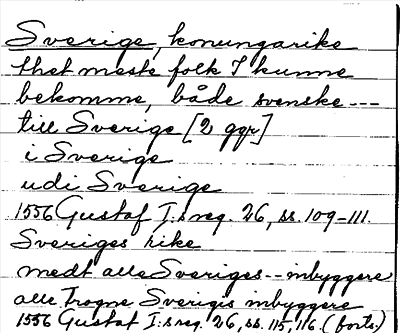 Sverige, konungarike
thet meste folk I kunne
bekomme, både svenske ---
till Sverige [2 ggr]
i Sverige
udi Sverige
1556 Gustaf I:s reg. 26, ss. 109-111.
Sveriges rike
medt alle Sveriges -- inbyggere
alle trogne Sverigis inbyggere
1556 Gustaf I:s reg. 26, ss. 115, 116. (forts.)